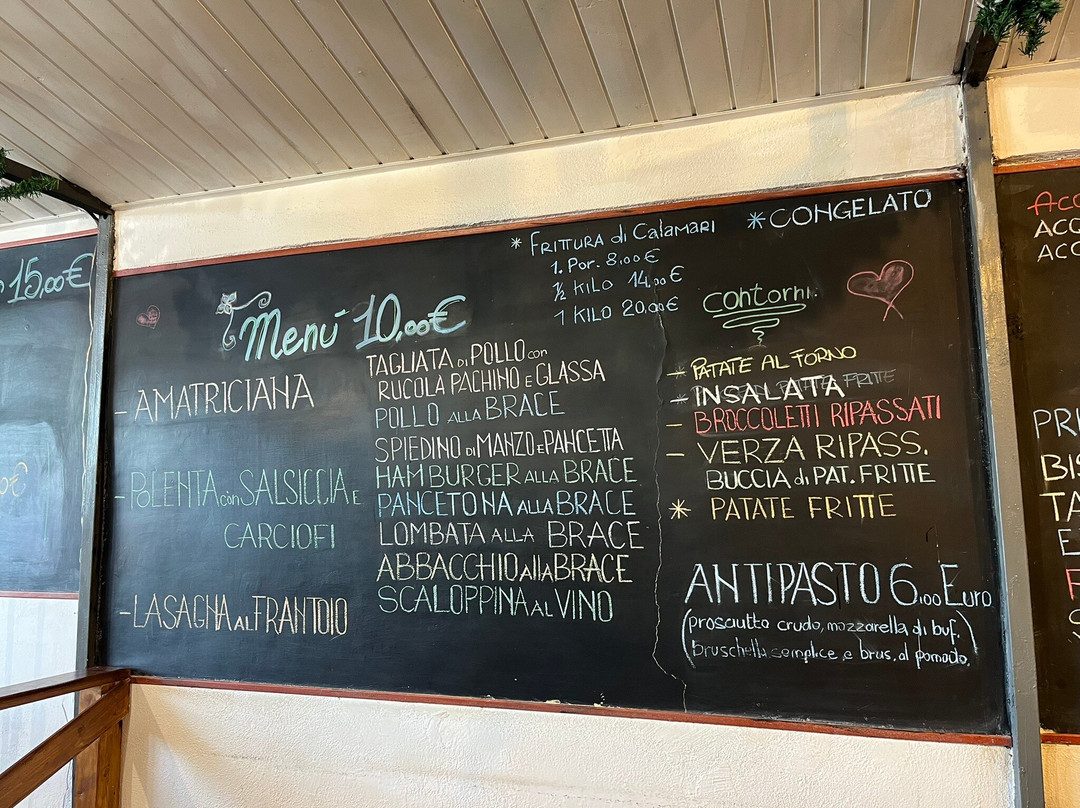 15,00€
* FRITTURA di Calamari
1. Por. 8,00€
½ KILO 14,00€
1 KILO 20,00€
* CONGELATO
Menú 10,00€
- AMATRICIANA
- POLENTA con SALSICCIA E
CARCIOFI
- LASAGNA AL FRANTOIO
TAGLIATA DI POLLO con
RUCOLA PACHINO E GLASSA
POLLO ALLA BRACE
SPIEDINO DI MANZO E PANCETTA
HAMBURGER ALLA BRACE
PANCETONA ALLA BRACE
LOMBATA ALLA BRACE
ABBACCHIO alla BRACE
SCALOPPINA AL VINO
contorni
* PATATE AL FORNO
* INSALATA
- BROCCOLETTI RIPASSATI
- VERZA RIPASS.
BUCCIA di PAT. FRITTE
* PATATE FRITTE
ANTIPASTO 6,00 Euro
(prosciutto crudo, mozzarella di buf.
bruschetta semplice e brus. al pomodo.)
ACQ
ACC
PRI
BIS
TA
E